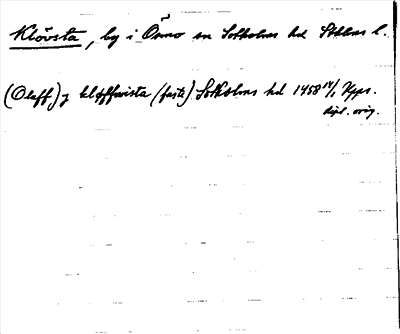 Klövsta, by i Ösmo sn Sotholms hd Sthlms l.
(Olaff) j kløffwista (faste) Sotholms hd 1458 14/1 Upps.
dipl. orig.